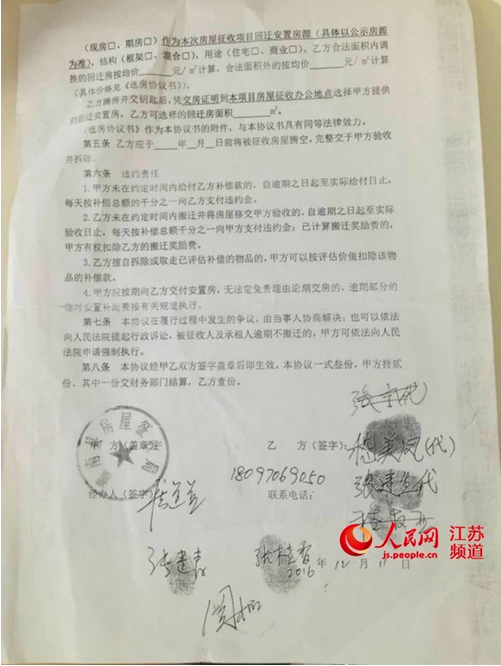 （现房□、期房□）作为本次房屋征收项目回迁安置房源（具体以公示房源
为准），结构（框架□、混合□），用途（住宅□、商业□）。乙方合法面积内调
换的回迁房按均价 元/㎡计算，合法面积外的按均价 元/㎡计算，
（具体价格见《选房协议书》）。
乙方腾房并交钥匙后，凭交房证明到本项目房屋征收办公地点选择甲方提供
的回迁安置房，乙方可选择的回迁房面积 ㎡。
《选房协议书》作为本协议书的附件，与本协议书具有同等法律效力。
第五条 乙方应于 年 月 日前将被征收房屋腾空，完整交于甲方验收
并拆除。
第六条 违约责任
1.甲方未在约定时间内给付乙方补偿款的，自逾期之日起至实际给付日止，
每天按补偿总额的千分之一向乙方支付违约金。
2.乙方未在约定时间内搬迁并将房屋移交甲方验收的，自逾期之日起至实际
验收日止，每天按补偿总额千分之一向甲方支付违约金；已计算搬迁奖励费的，
甲方有权扣除乙方的搬迁奖励费。
3.乙方擅自拆除或取走已评估补偿的物品的，甲方可以按评估价值扣除该物
品的补偿款。
4.甲方应按期向乙方交付安置房，无法定免责理由逾期交房的，逾期部分的
临时安置补助费按有关规定执行。
第七条 本协议在履行过程中发生的争议，由当事人协商解决；也可以依法
向人民法院提起行政诉讼，被征收人及承租人逾期不搬迁的，甲方可依法向人民
法院申请强制执行。
第八条 本协议经甲乙双方签字盖章后即生效，本协议一式叁份，甲方持贰
份、其中一份交财务部门结算，乙方壹份。
方（盖章）
乙 方（签字）：
(代)
张建生代
18097069050
经办人（签字）
联系电话：
张建春
张桂香
2016 年 12 月 日
人民网 江苏
js.people.cn 频道